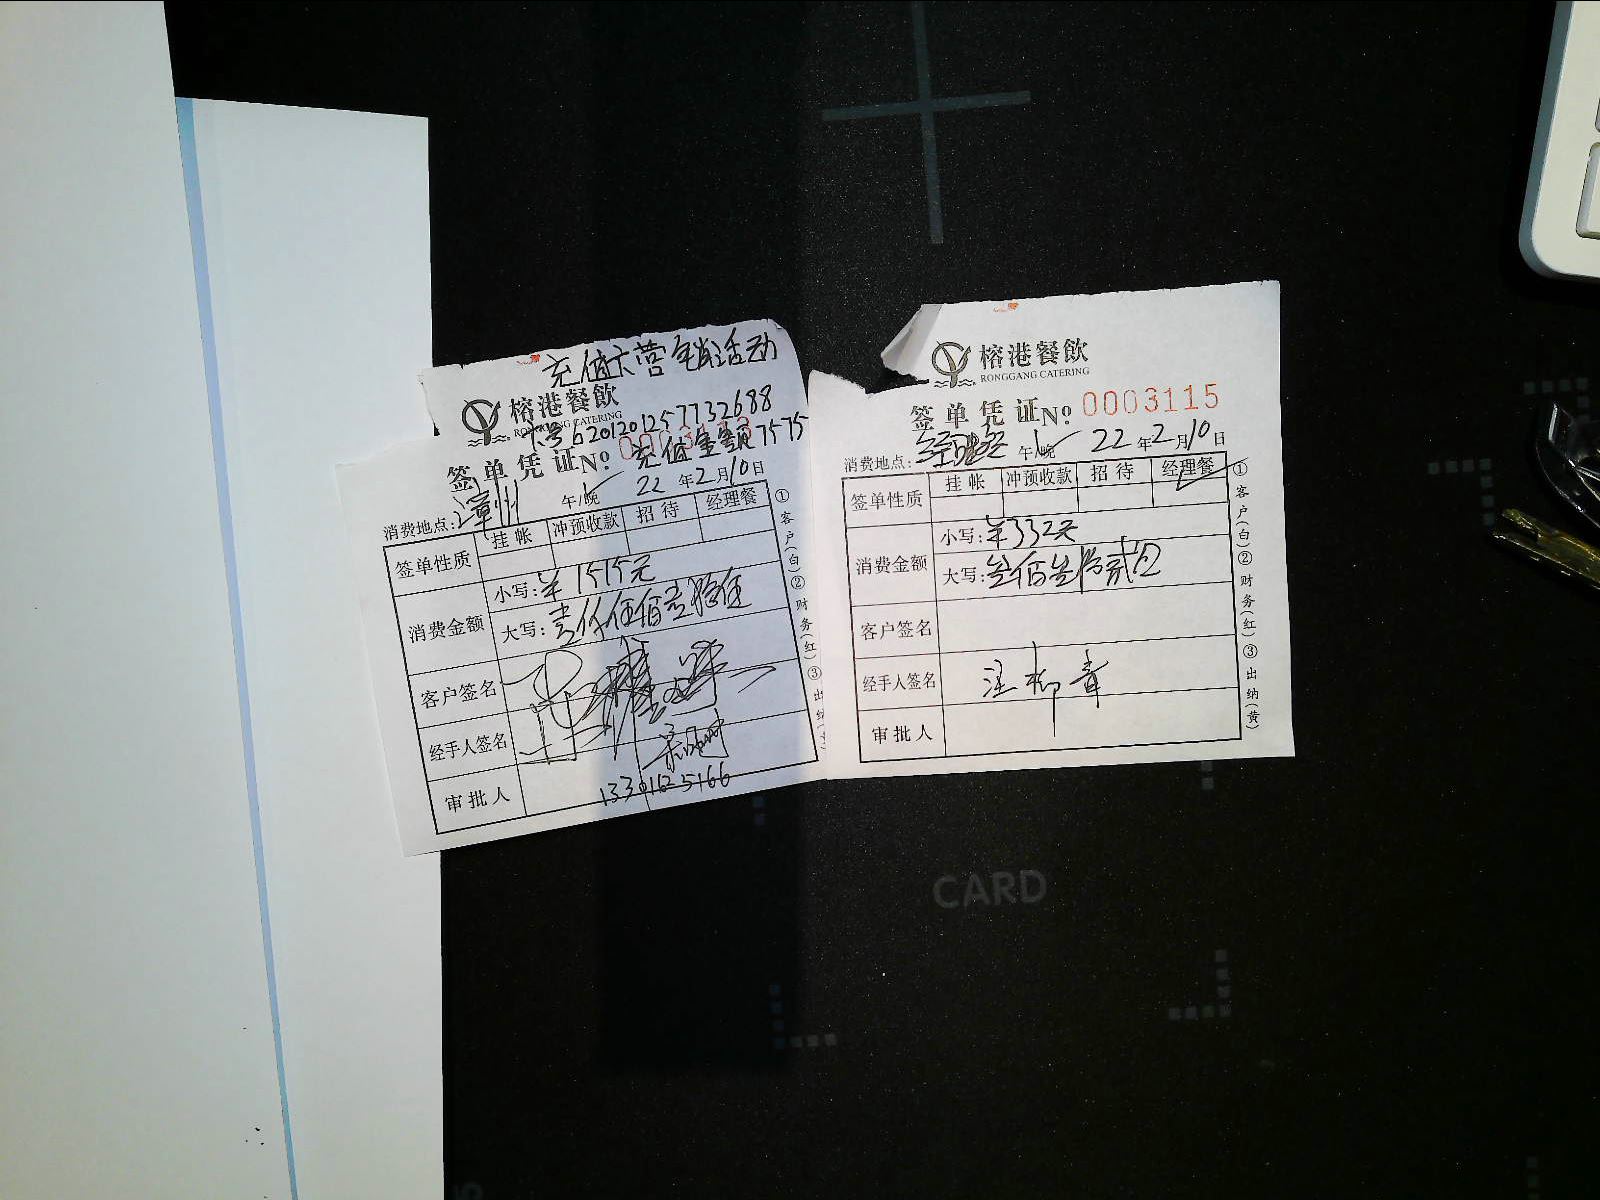 充值六营销活动
榕港餐飲
RONGGANG CATERING
卡号6201201257732688
签单凭证Nº 充值金额7575
消费地点:漳州 午/晚 22年2月10日
签单性质 挂帐 冲预收款 招待 经理餐
消费金额 小写:¥1515元
大写:壹仟伍佰壹拾伍
客户签名
经手人签名
审批人 13301625166
①客户(白)②财务(红)③出纳
榕港餐飲
RONGGANG CATERING
签单凭证Nº 0003115
消费地点: 午/晚 22年2月10日
签单性质 挂帐 冲预收款 招待 经理餐
消费金额 小写:¥332元
大写:叁佰叁拾贰元
客户签名
经手人签名 汪柳青
审批人
①客户(白)②财务(红)③出纳(黄)
CARD